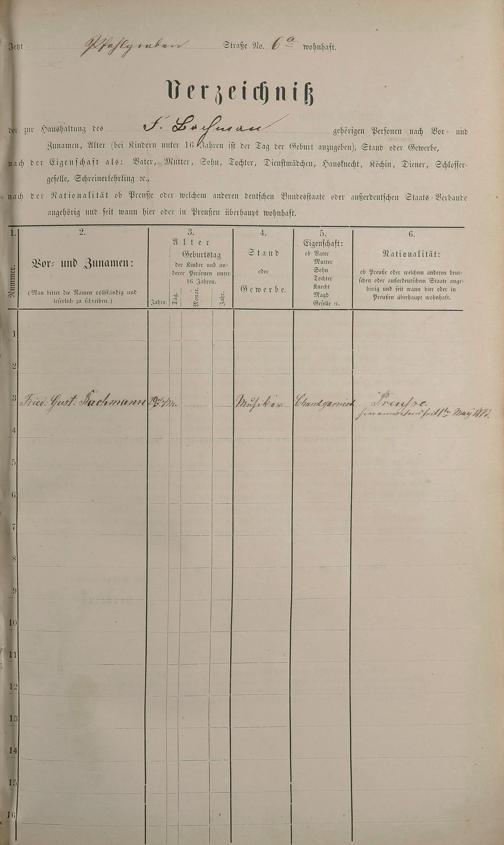 Jetzt Pfahlgraben Straße No. 6a wohnhaft.
Verzeichniß
der zur Haushaltung des F. Bachman gehörigen Personen nach Vor- und
Zunamen, Alter (bei Kindern unter 16 Jahren ist der Tag der Geburt anzugeben), Stand oder Gewerbe,
nach der Eigenschaft als: Vater, Mutter, Sohn, Tochter, Dienstmädchen, Hausknecht, Köchin, Diener, Schlosser-
geselle, Schreinerlehrling ꝛc.,
nach der Nationalität ob Preuße oder welchem anderen deutschen Bundesstaate oder außerdeutschen Staats-Verbande
angehörig und seit wann hier oder in Preußen überhaupt wohnhaft.
1.
Nummer.
2.
Vor- und Zunamen:
(Man bittet die Namen vollständig und
leserlich zu schreiben.)
3.
Alter
Geburtstag
der Kinder und an-
derer Personen unter
16 Jahren.
Jahre.
Tag.
Monat.
Jahr.
4.
Stand
oder
Gewerbe.
5.
Eigenschaft:
ob Vater
Mutter
Sohn
Tochter
Knecht
Magd
Geselle ꝛc.
6.
Nationalität:
ob Preuße oder welchem anderen deut-
schen oder außerdeutschen Staate ange-
hörig und seit wann hier oder in
Preußen überhaupt wohnhaft.
1
2
3 Fried. Gust. Bachmann Musiker Preuße
May
4
5
6
7
8
9
10
11
12
13
14
15
16